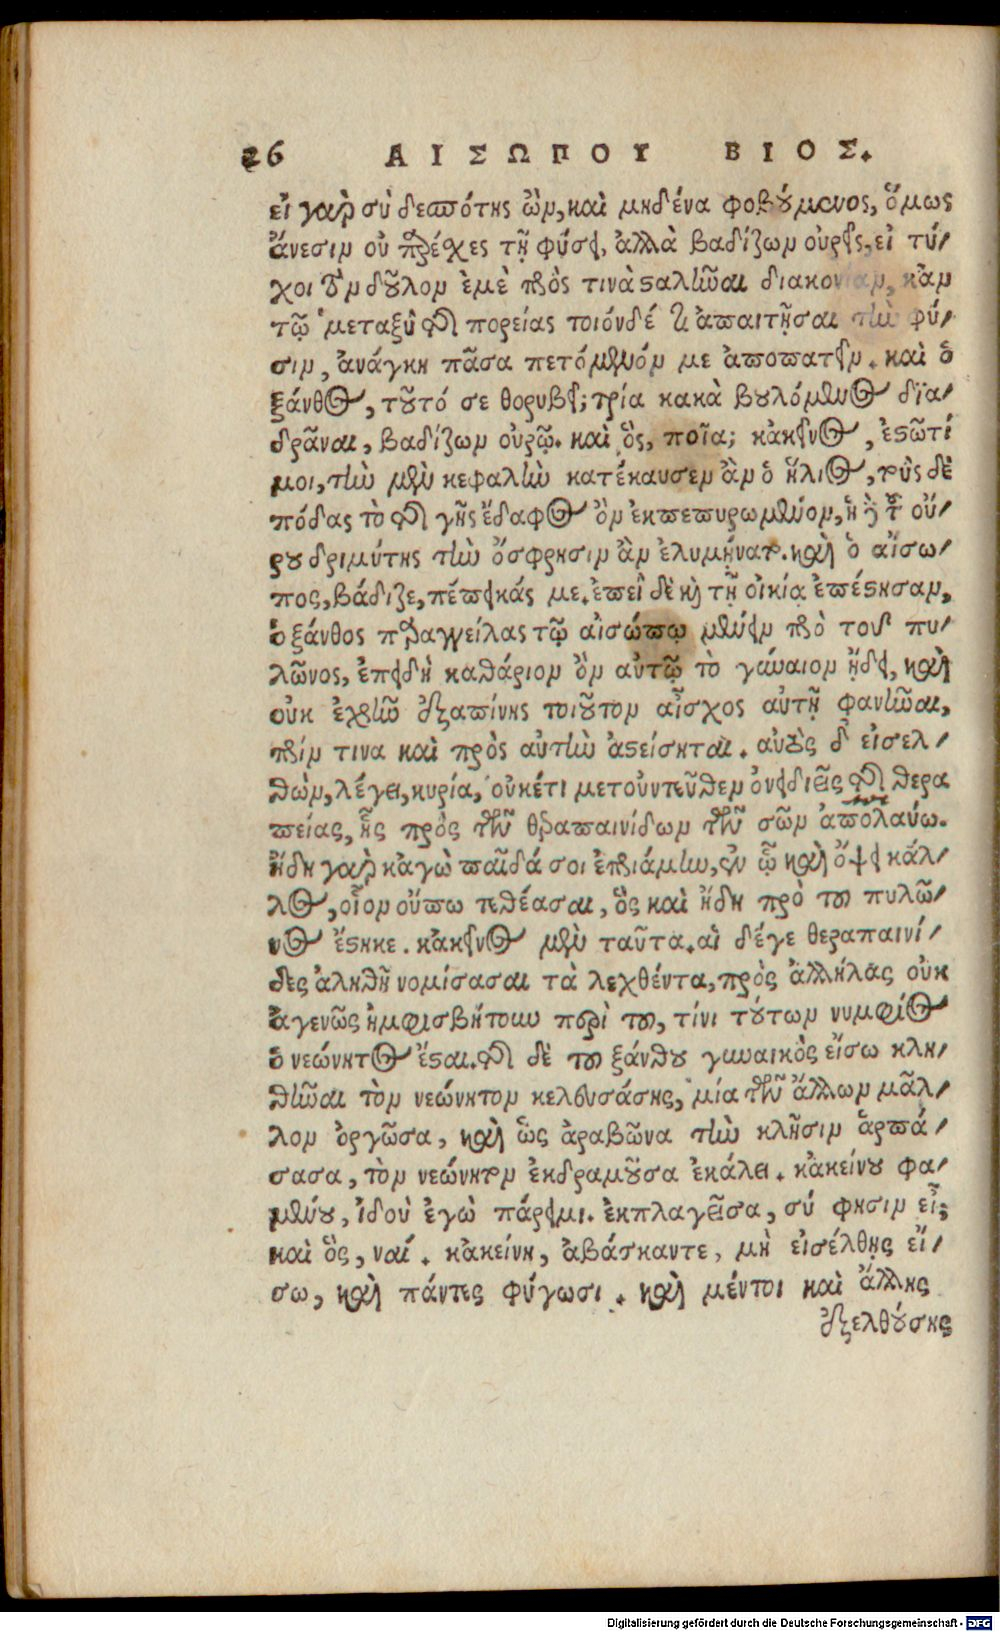 26 ΑΙΣΩΠΟΥ ΒΙΟΣ.
εἰ γὰρ σὺ δεσπότης ὢν, καὶ μηδένα φοβούμενος, ὅμως
ἄνεσιν οὐ παρέχες τῇ φύσει, ἀλλὰ βαδίζων οὐρεῖς, εἰ τύ-
χοι τὸν δοῦλον ἐμὲ πρός τινα σαλῶαι διακονίαν, κἀν
τῷ μεταξὺ τῆς πορείας τοιόνδέ τι ἀπαιτῆσαι τὴν φύ-
σιν, ἀνάγκη πᾶσα πετόμενόν με ἀποπατεῖν. καὶ ὁ
ξάνθος, τοῦτό σε θορυβεῖ; τρία κακὰ βουλόμενος δια-
δρᾶναι, βαδίζων οὐρῶ. καὶ ὃς, ποῖα; κἀκεῖνος, ἑστῶτί
μοι, τὴν μὲν κεφαλὴν κατέκαυσεν ἂν ὁ ἥλιος, τοὺς δὲ
πόδας τὸ τῆς γῆς ἔδαφος ὂν ἐκπεπυρωμένον, ἡ δὲ τοῦ οὔ-
ρου δριμύτης τὴν ὄσφρησιν ἂν ἐλυμήνατο. καὶ ὁ αἴσω-
πος, βάδιζε, πέπεικάς με. ἐπεὶ δὲ καὶ τῇ οἰκίᾳ ἐπέστησαν,
ὁ ξάνθος παραγγείλας τῷ αἰσώπῳ μένειν πρὸ τοῦ πυ-
λῶνος, ἐπειδὴ καθάριον ὂν αὐτῷ τὸ γύναιον ᾔδει, καὶ
οὐκ ἐχρῆν ἐξαπίνης τοιοῦτον αἶσχος αὐτῇ φανῆναι,
πρίν τινα καὶ πρὸς αὐτὴν ἀστείσηται. αὐτὸς δ' εἰσελ-
θὼν, λέγει, κυρία, οὐκέτι μοι τοὐντεῦθεν ὀνειδιεῖς τῆς θερα
πείας, ἧς πρὸς τῶν θεραπαινίδων τῶν σῶν ἀπολαύω.
ἤδη γὰρ κἀγὼ παῖδά σοι ἐπριάμην, ἐν ᾧ καὶ ὄψει κάλ-
λος, οἷον οὔπω τεθέασαι, ὃς καὶ ἤδη πρὸ τοῦ πυλῶ-
νος ἕστηκε. κἀκεῖνος μὲν ταῦτα. αἱ δέγε θεραπαινί-
δες ἀληθῆ νομίσασαι τὰ λεχθέντα, πρὸς ἀλλήλας οὐκ
ἀγενῶς ἠμφισβήτουν περὶ τοῦ, τίνι τούτων νυμφίος
ὁ νεώνητος ἔσται. τῆς δὲ τοῦ ξάνθου γυναικὸς εἴσω κλη-
θῆναι τὸν νεώνητον κελευσάσης, μία τῶν ἄλλων μᾶλ-
λον ὀργῶσα, καὶ ὡς ἀραβῶνα τὴν κλῆσιν ἁρπά-
σασα, τὸν νεώνητον ἐκδραμοῦσα ἐκάλει. κἀκείνου φα-
μένου, ἰδοὺ ἐγὼ πάρειμι. ἐκπλαγεῖσα, σύ φησιν εἶ;
καὶ ὃς, ναί. κἀκείνη, ἀβάσκαντε, μὴ εἰσέλθῃς εἴ-
σω, καὶ πάντες φύγωσι. καὶ μέντοι καὶ ἄλλης
ἐξελθούσης
Digitalisierung gefördert durch die Deutsche Forschungsgemeinschaft - DFG